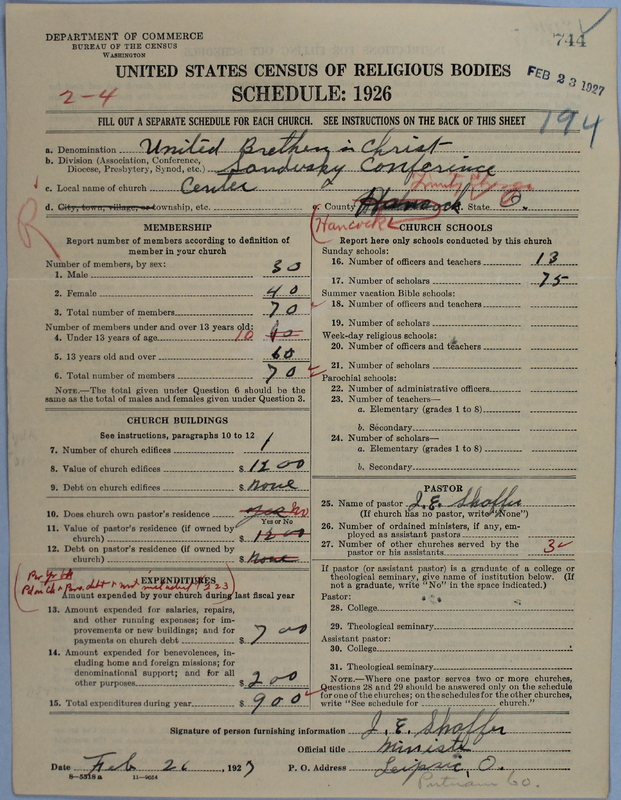 DEPARTMENT OF COMMERCE
BUREAU OF THE CENSUS
WASHINGTON
744
UNITED STATES CENSUS OF RELIGIOUS BODIES
FEB 23 1927
2-4
SCHEDULE: 1926
FILL OUT A SEPARATE SCHEDULE FOR EACH CHURCH. SEE INSTRUCTIONS ON THE BACK OF THIS SHEET
194
a. Denomination United Brethern in Christ
b. Division (Association, Conference, Diocese, Presbytery, Synod, etc.) Sandusky Conference
c. Local name of church Center
d. City, town, village, or township, etc. e. County Hancock f. State O
R
Hancock
MEMBERSHIP
Report number of members according to definition of member in your church
Number of members, by sex:
1. Male 30
2. Female 40
3. Total number of members 70
Number of members under and over 13 years old:
4. Under 13 years of age 10 10
5. 13 years old and over 60
6. Total number of members 70
NOTE.—The total given under Question 6 should be the same as the total of males and females given under Question 3.
CHURCH BUILDINGS
See instructions, paragraphs 10 to 12
7. Number of church edifices 1
8. Value of church edifices $ 1200
9. Debt on church edifices $ None
10. Does church own pastor's residence yes No
Yes or No
11. Value of pastor's residence (if owned by church) $ 1200
12. Debt on pastor's residence (if owned by church) $ None
EXPENDITURES
Amount expended by your church during last fiscal year
13. Amount expended for salaries, repairs, and other running expenses; for improvements or new buildings; and for payments on church debt $ 700
14. Amount expended for benevolences, including home and foreign missions; for denominational support; and for all other purposes $ 200
15. Total expenditures during year $ 900
CHURCH SCHOOLS
Report here only schools conducted by this church
Sunday schools:
16. Number of officers and teachers 13
17. Number of scholars 75
Summer vacation Bible schools:
18. Number of officers and teachers
19. Number of scholars
Week-day religious schools:
20. Number of officers and teachers
21. Number of scholars
Parochial schools:
22. Number of administrative officers
23. Number of teachers—
a. Elementary (grades 1 to 8)
b. Secondary
24. Number of scholars—
a. Elementary (grades 1 to 8)
b. Secondary
PASTOR
25. Name of pastor J. E. Shaffer
(If church has no pastor, write "None")
26. Number of ordained ministers, if any, employed as assistant pastors
27. Number of other churches served by the pastor or his assistants 3
If pastor (or assistant pastor) is a graduate of a college or theological seminary, give name of institution below. (If not a graduate, write "No" in the space indicated.)
Pastor:
28. College
29. Theological seminary
Assistant pastor:
30. College
31. Theological seminary
NOTE.—Where one pastor serves two or more churches, Questions 28 and 29 should be answered only on the schedule for one of the churches; on the schedules for the other churches, write "See schedule for church."
Signature of person furnishing information J. E. Shaffer
Official title Minister
Date Feb 26, 1927 P. O. Address Leipsic, O.
8-5318a 11-9054
Putnam Co.